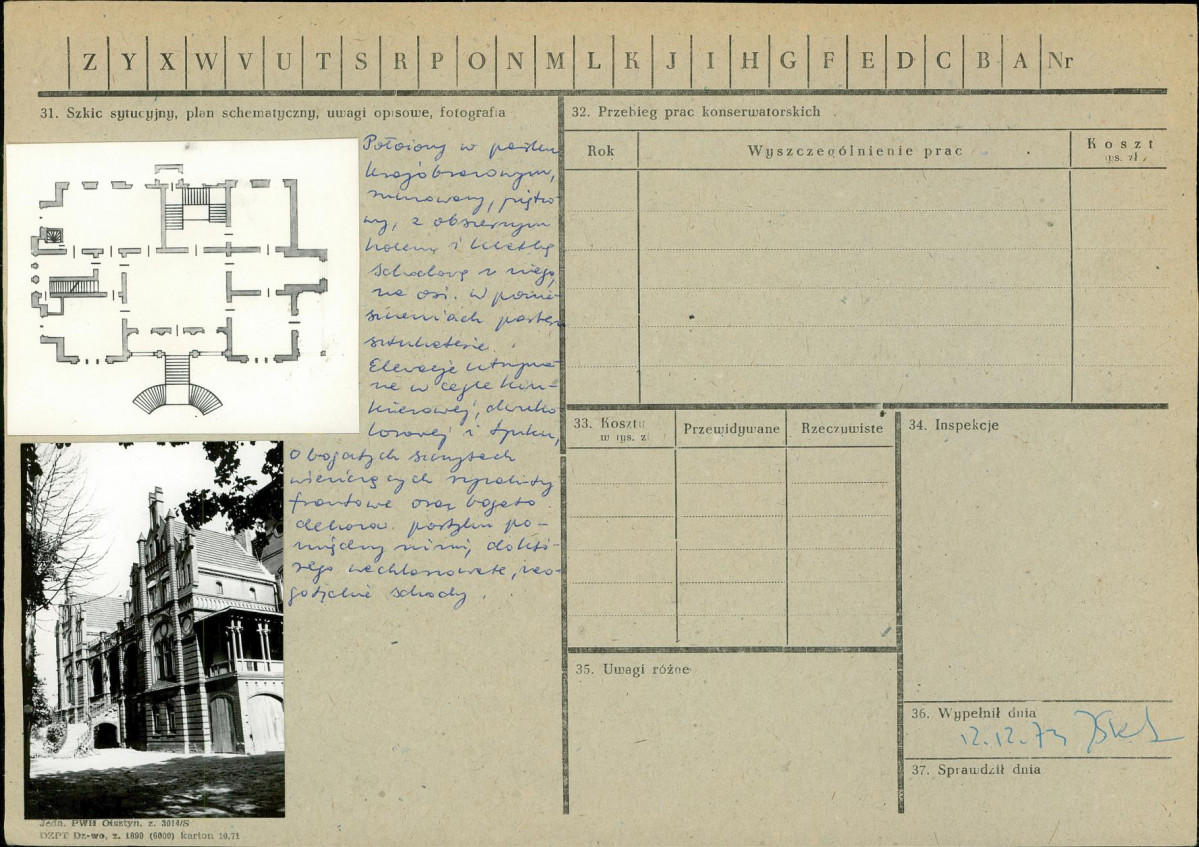 Z Y X W V U T S R P O N M L K J I H G F E D C B A Nr
31. Szkic sytucyjny, plan schematyczny, uwagi opisowe, fotografia
Położony w parku
krajobrazowym,
murowany, piętro-
wy, z obszernym
holem i klatką
schodową z niego,
na osi. W pomie-
szczeniach
sztukaterie.
Elewacje utrzyma-
ne w cegle klin-
kierowej,
i tynku,
o bogatych szczytach
wieńczących ryzality
frontowe oraz bogato
dekora. portyku po-
między nimi,
wachlarzowate, neo-
gotyckie schody.
32. Przebieg prac konserwatorskich
Rok
Wyszczególnienie prac
Koszt
tys. zł
33. Koszty
w tys. zł
Przewidywane
Rzeczywiste
34. Inspekcje
35. Uwagi różne
36. Wypełnił dnia
12.12.73
37. Sprawdził dnia
Jedn. PWH Olsztyn, z. 3014/S
DZPT Dz-wo, z. 1899 (6000) karton 10.71